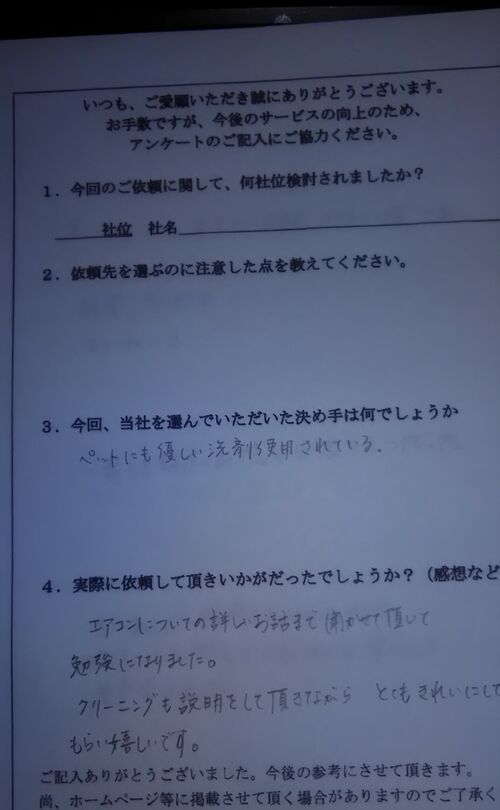 いつも、ご愛願いただき誠にありがとうございます。
お手数ですが、今後のサービスの向上のため、
アンケートのご記入にご協力ください。
1．今回のご依頼に関して、何社位検討されましたか？
社位　社名
2．依頼先を選ぶのに注意した点を教えてください。
3．今回、当社を選んでいただいた決め手は何でしょうか
ペットにも優しい洗剤使用されている。
4．実際に依頼して頂きいかがだったでしょうか？（感想など
エアコンについての詳しいお話まで聞かせて頂いて
勉強になりました。
クリーニングも説明をして頂きながら とてもきれいにして
もらい嬉しいです。
ご記入ありがとうございました。今後の参考にさせて頂きます。
尚、ホームページ等に掲載させて頂く場合がありますのでご了承く